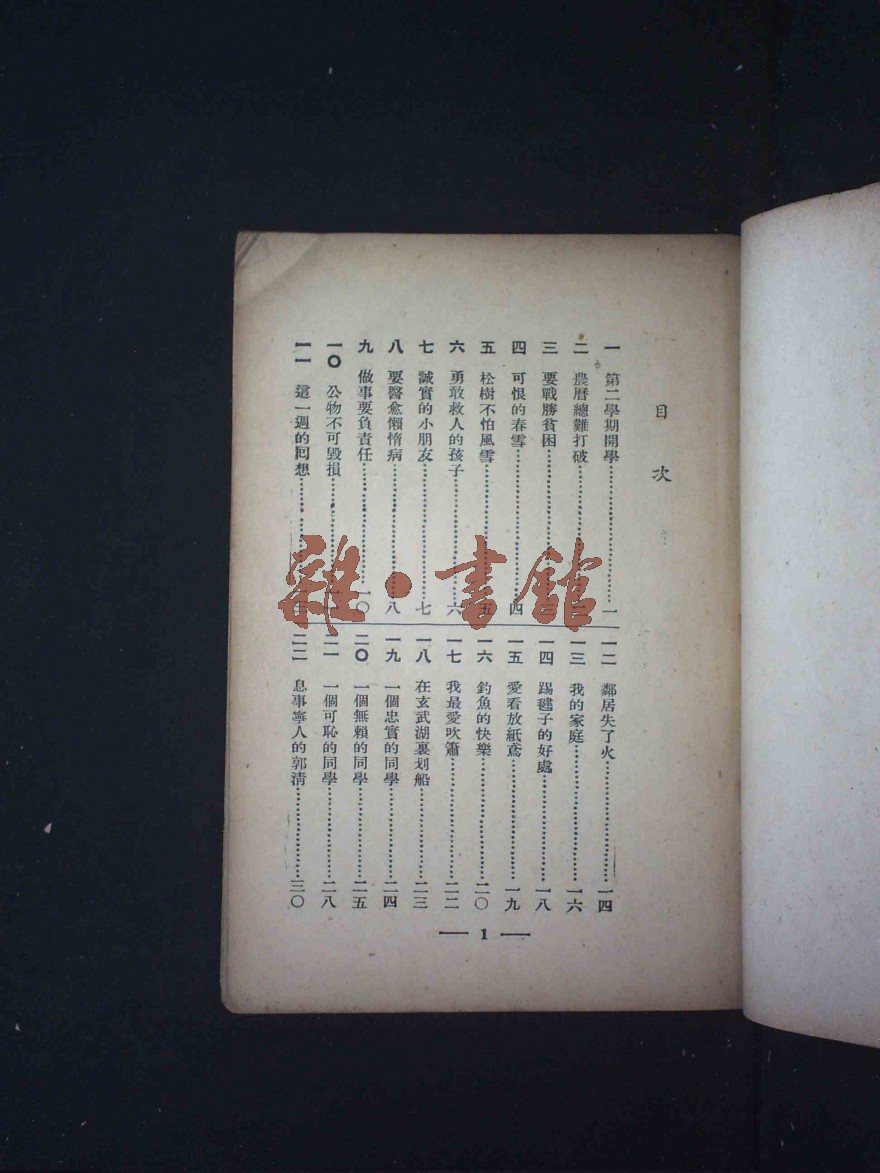 目次
一 第二學期開學……一
二 農曆總難打破……
三 要戰勝貧困……
四 可恨的春雪……四
五 松樹不怕風雪……五
六 勇敢救人的孩子……六
七 誠實的小朋友……七
八 要醫愈懶惰病……八
九 做事要負責任……一〇
一〇 公物不可毀損……
一一 這一週的回想……
一二 鄰居失了火……一四
一三 我的家庭……一六
一四 踢毽子的好處……一八
一五 愛看放紙鳶……一九
一六 釣魚的快樂……二〇
一七 我最愛吹簫……二二
一八 在玄武湖裏划船……二三
一九 一個忠實的同學……二四
二〇 一個無賴的同學……二五
二一 一個可恥的同學……二八
二二 息事寧人的郭清……三〇
— 1 —
雜·書館